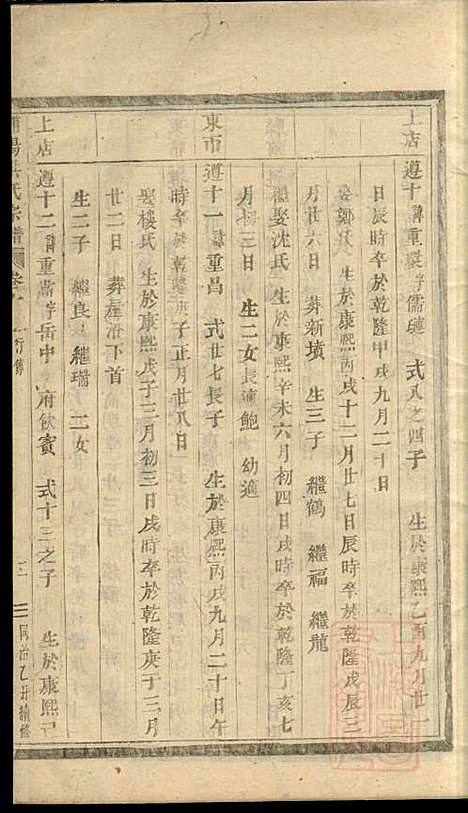 上店 遵十諱重 字儒 式八之四子 生於康熙乙酉九月廿一
日辰時卒於乾隆甲戌九月二十日
娶鄭氏 生於康熙丙戌十二月廿七日辰時卒於乾隆戊辰三
月廿六日 葬新墳 生三子 繼鶴 繼福 繼龍
繼娶沈氏 生於康熙辛未六月初四日戌時卒於乾隆丁亥七
月初三日 生二女長適鮑 幼適
東市 遵十一諱重昌 式廿七長子 生於康熙丙戌九月二十日午
時卒於乾隆 子正月廿八日
娶樓氏 生於康熙戊子三月初三日戌時卒於乾隆庚子三月
廿二日 葬 下首
生二子 繼良 繼瑞 二女
上店 遵十二諱重 字岳中 府飲賓 式十三之子 生於康熙己
陽 氏宗譜 卷 行傳 三 同治乙丑續修